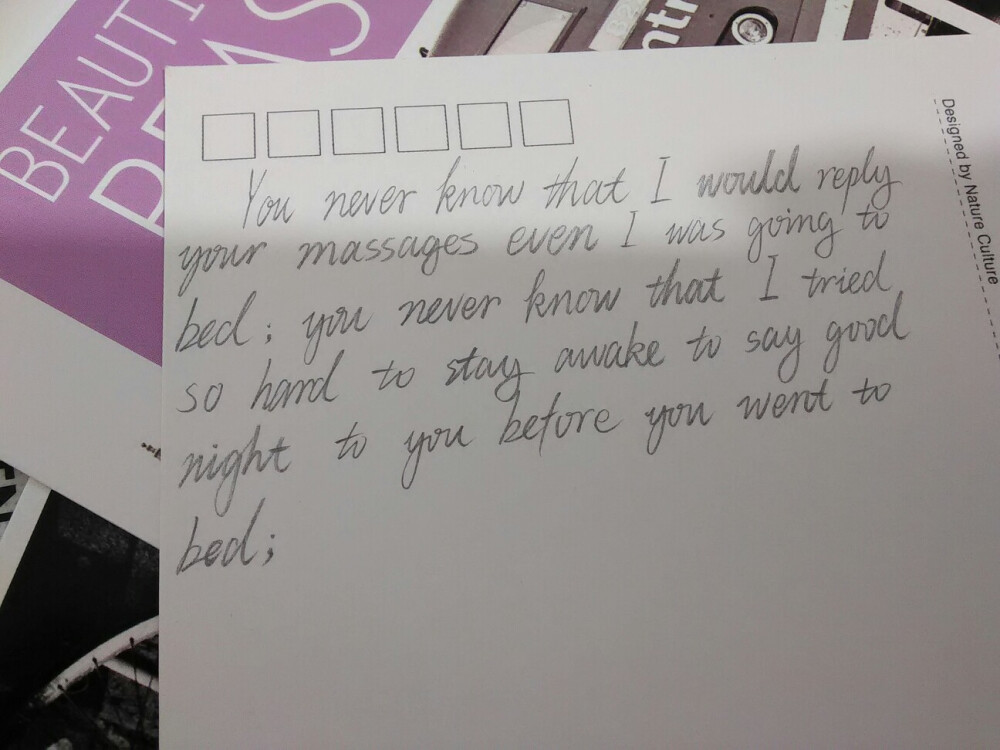 BEAUTI
ntr
Designed by Nature Culture
You never know that I would reply
your massages even I was going to
bed; you never know that I tried
so hard to stay awake to say good
night to you before you went to
bed;